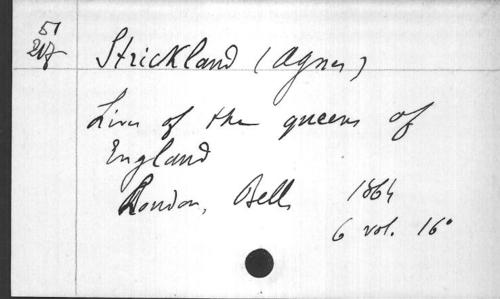 51
217
Strickland (Agnes)
Lives of the queens of
England
London, Bell 1864
6 vol. 16°